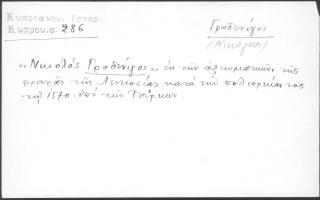 Κυπριανού. Ιστορ.
Κύπρου.σ. 286
Γραδενίγος
(Νικόλαος)
«Νικολός Γραδενίγος» εκ των αξιωματικών της
φρουράς της Λευκωσίας κατά την πολιορκίαν της
τω 1570 υπό των Τούρκων.